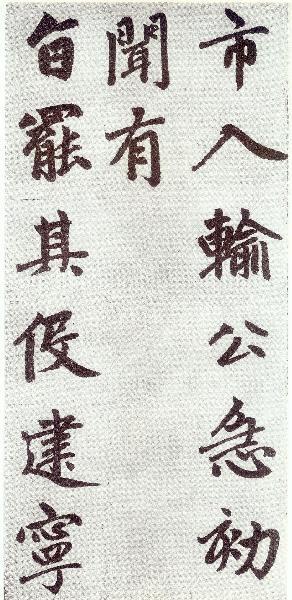 市入輸公急劾
聞有
旨罷其役建寧